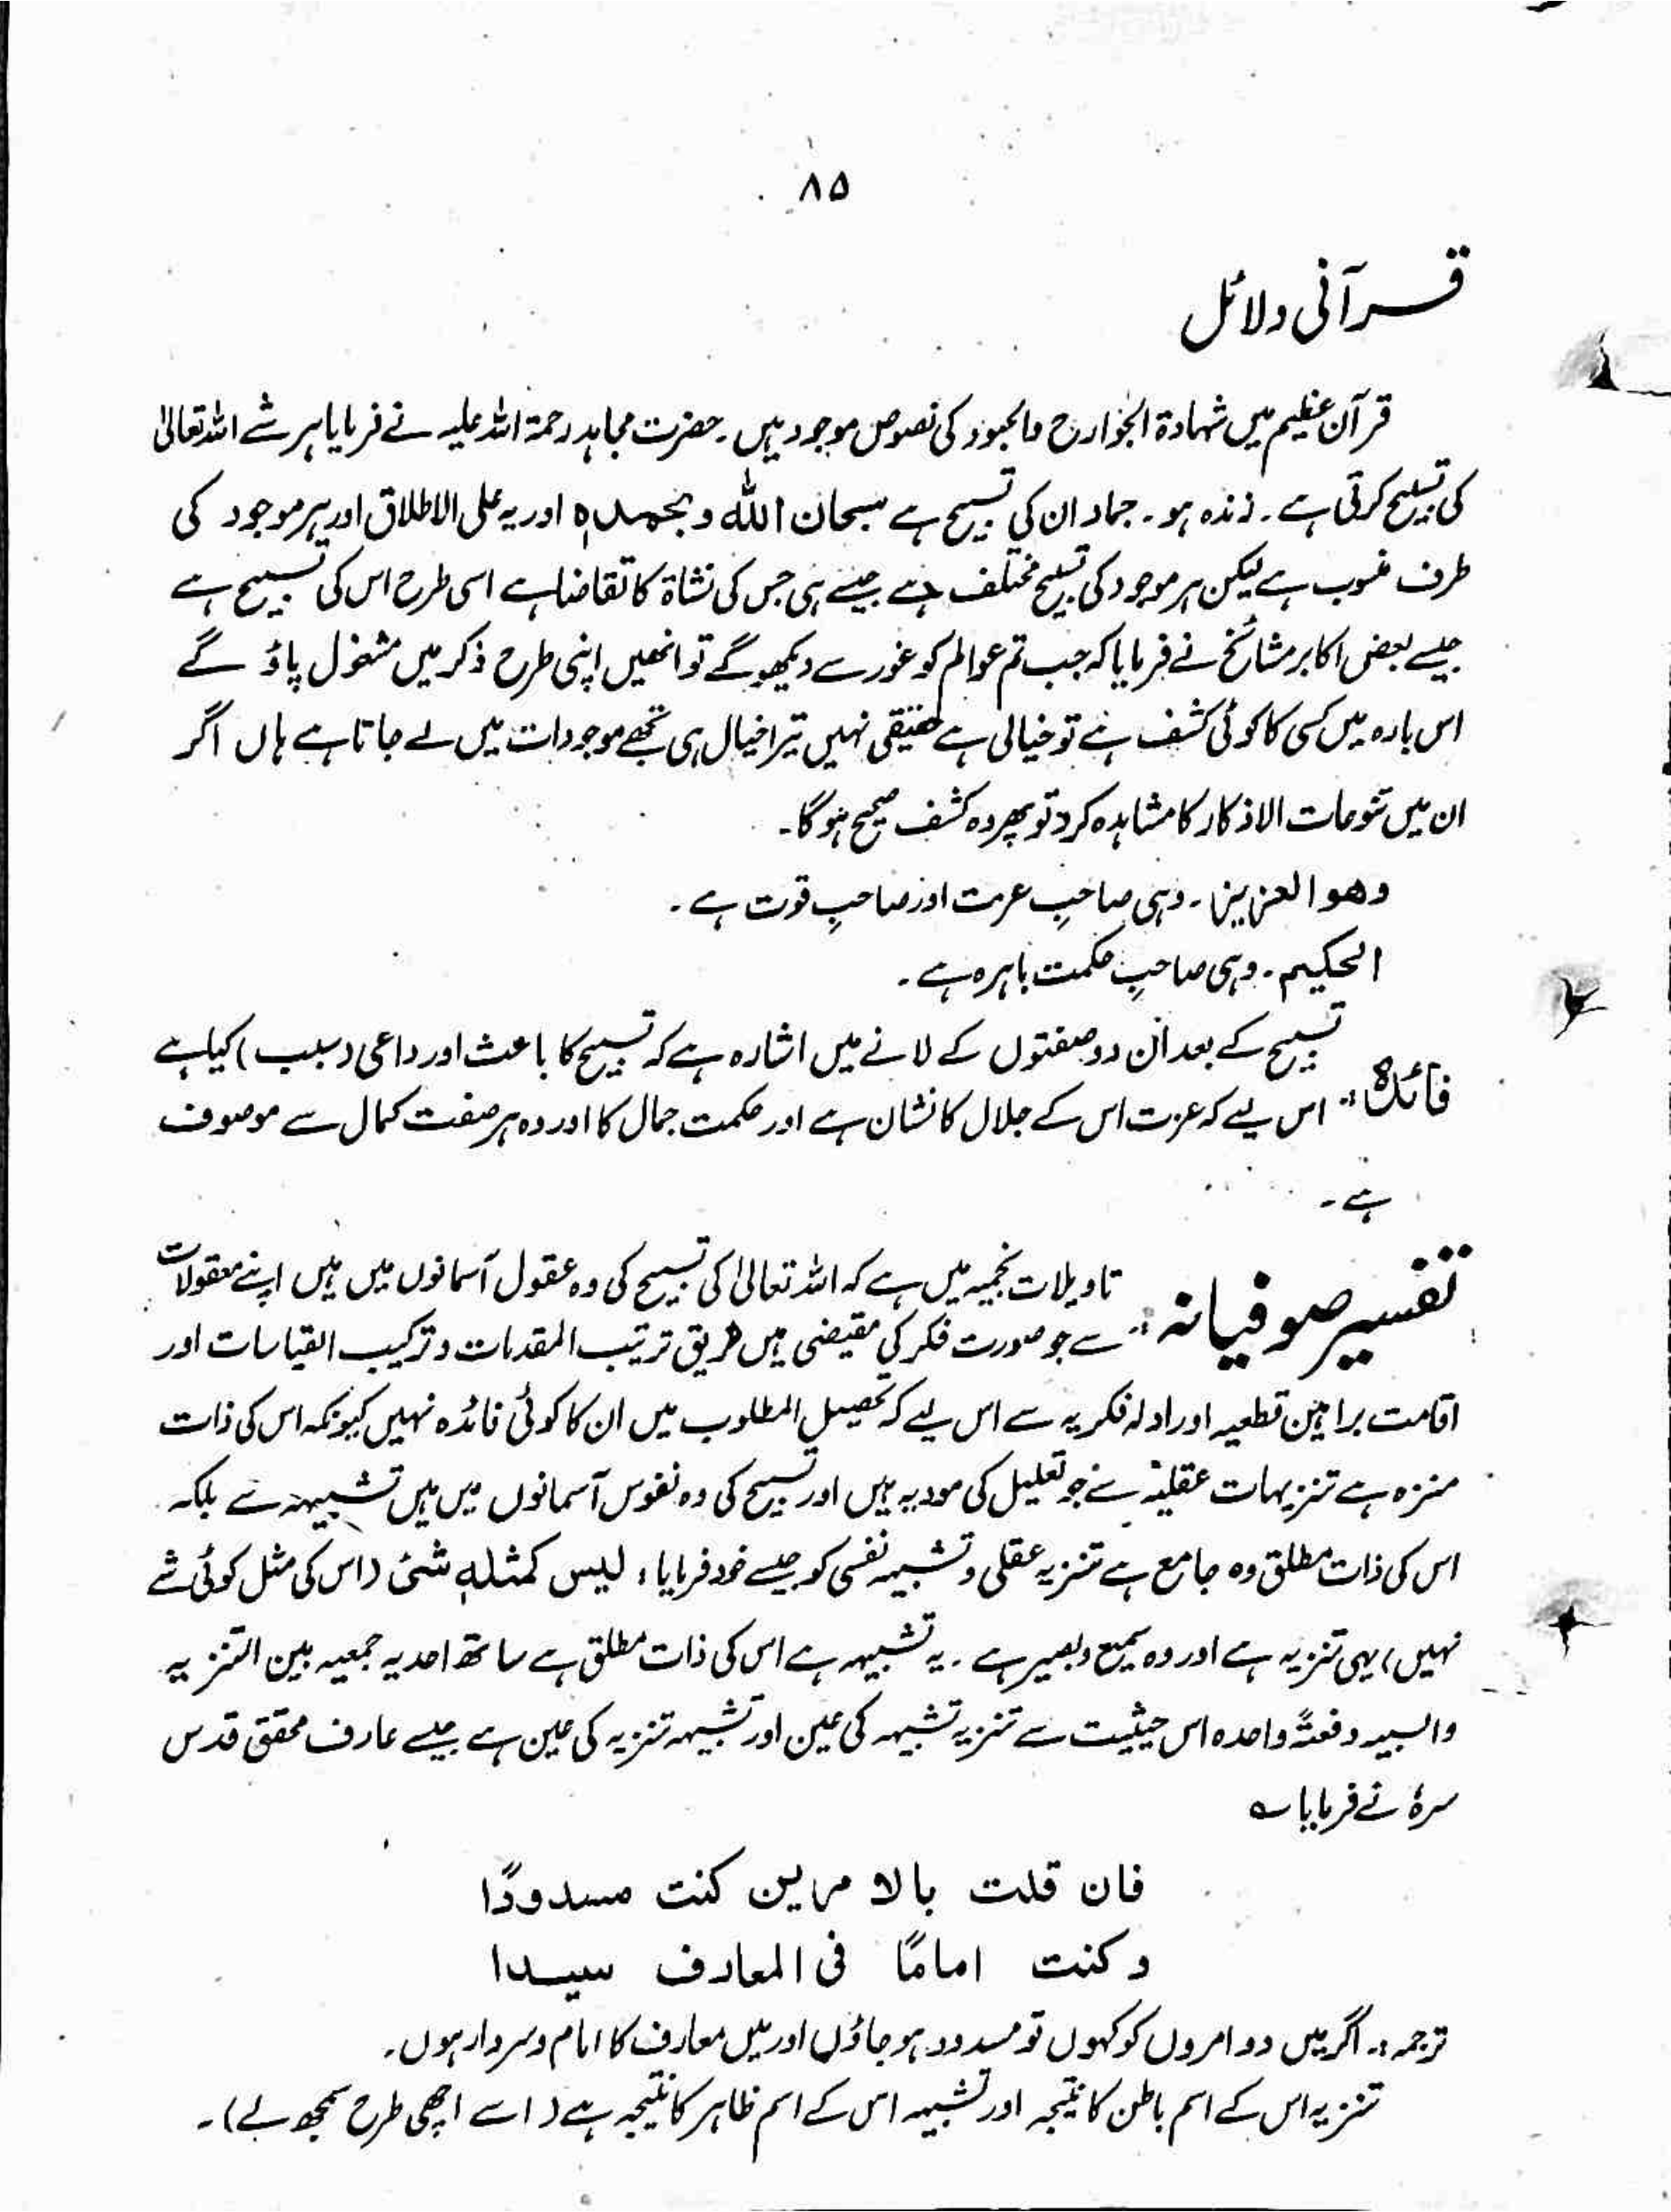 ۸۵
قرآنی دلائل
قرآن عظیم میں شہادۃ الجوارح والجبود کی نصوص موجود ہیں۔ حضرت مجاہد رحمۃ اللہ علیہ نے فرمایا ہر شے اللہ تعالیٰ
کی تسبیح کرتی ہے۔ زندہ ہو۔ جماد ان کی تسبیح ہے سبحان اللہ وبحمدہ اور یہ علی الاطلاق اور ہر موجود کی
طرف منسوب ہے لیکن ہر موجود کی تسبیح مختلف ہے جیسے ہی جس کی نشاۃ کا تقاضا ہے اسی طرح اس کی تسبیح ہے
جیسے بعض اکابر مشائخ نے فرمایا کہ جب تم عوالم کو غور سے دیکھو گے تو انھیں اپنی طرح ذکر میں مشغول پاؤ گے
اس بارہ میں کسی کا کوئی کشف ہے تو خیالی ہے حقیقی نہیں تیرا خیال ہی تجھے موجودات میں لے جاتا ہے ہاں اگر
ان میں تنوعات الاذکار کا مشاہدہ کرو تو پھر وہ کشف صحیح ہوگا۔
وھو العزیز۔ وہی صاحبِ عزت اور صاحبِ قوت ہے۔
الحکیم۔ وہی صاحبِ حکمت باہرہ ہے۔
فائدہ: تسبیح کے بعد ان دو صفتوں کے لانے میں اشارہ ہے کہ تسبیح کا باعث اور داعی (سبب) کیا ہے
اس لیے کہ عزت اس کے جلال کا نشان ہے اور حکمت جمال کا اور وہ ہر صفت کمال سے موصوف
ہے۔
تفسیر صوفیانہ: تاویلات نجمیہ میں ہے کہ اللہ تعالیٰ کی تسبیح کی وہ عقول آسمانوں میں ہیں اپنے معقولات
سے جو صورت فکر کی مقیضی ہیں طریق ترتیب المقدمات و ترکیب القیاسات اور
اقامت براہین قطعیہ اور ادلہ فکریہ سے اس لیے کہ تحصیل المطلوب میں ان کا کوئی فائدہ نہیں کیونکہ اس کی ذات
منزہ ہے تنزیہات عقلیہ سے جو تعلیل کی مودیہ ہیں اور تسبیح کی وہ نفوس آسمانوں میں ہیں تشبیہہ سے بلکہ
اس کی ذات مطلق وہ جامع ہے تنزیہ عقلی و تشبیہ نفسی کو جیسے خود فرمایا، لیس کمثلہٖ شئ (اس کی مثل کوئی شے
نہیں) یہی تنزیہ ہے اور وہ سمیع وبصیر ہے۔ یہ تشبیہہ ہے اس کی ذات مطلق ہے ساتھ احدیہ جمعیہ بین التنزیہ
والسبیہ دفعۃً واحدہ اس حیثیت سے تنزیہ تشبیہہ کی عین اور تشبیہہ تنزیہ کی عین ہے جیسے عارف محقق قدس
سرہٗ نے فرمایا ؎
فان قلت بالامرین کنت مسدودًا
وکنت امامًا فی المعارف سیدا
ترجمہ:۔ اگر میں دو امروں کو کہوں تو مسدود ہو جاؤں اور میں معارف کا امام و سردار ہوں۔
تنزیہ اس کے اسم باطن کا نتیجہ اور تشبیہہ اس کے اسم ظاہر کا نتیجہ ہے (اسے اچھی طرح سمجھ لے)۔